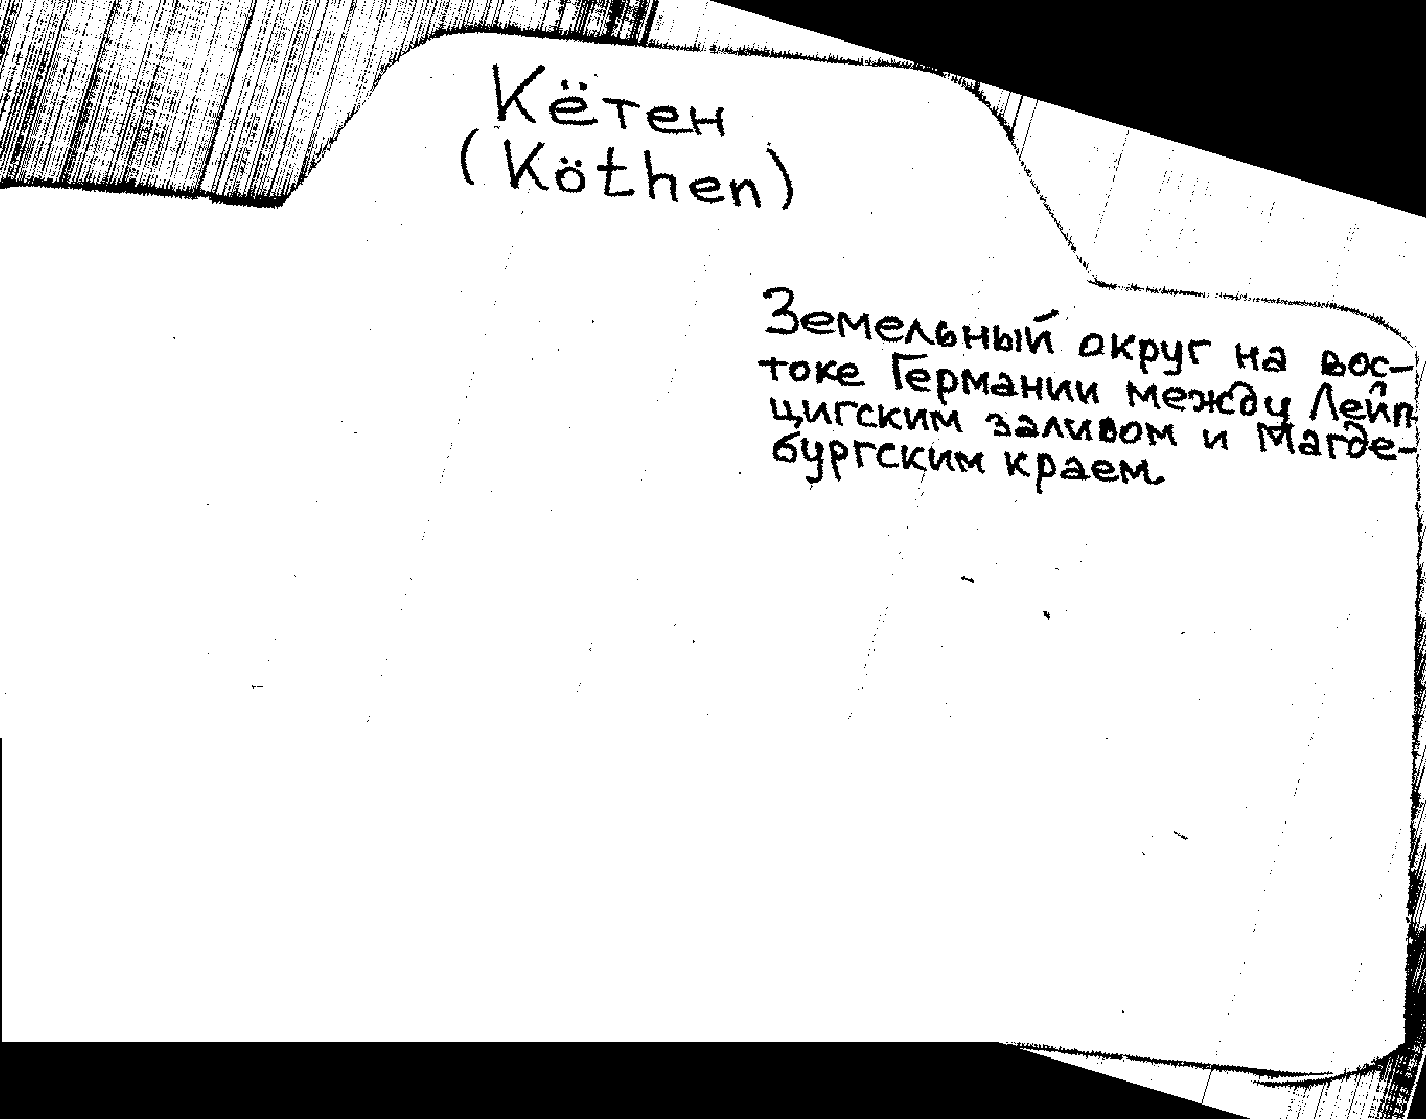 Кётен
(Köthen)
Земельный округ на вос-
токе Германии между Лейп
цигским заливом и Магде-
бургским краем.